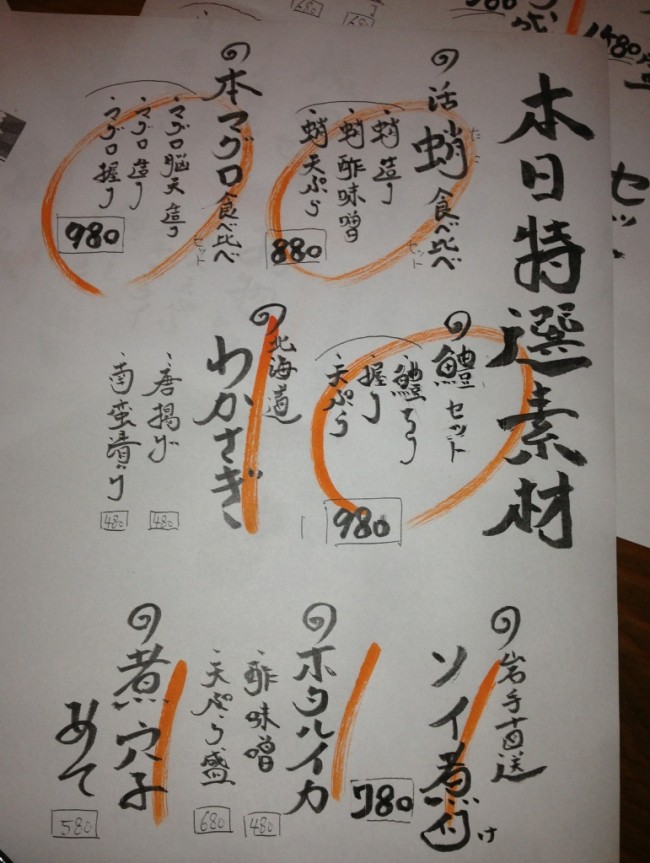 本日特選素材
活蛸食べ比べ
たこ
セット
蛸造り
蛸酢味噌
蛸天ぷら
880
本マグロ食べ比べ
セット
マグロ脳天造り
マグロ造り
マグロ握り
980
鱧セット
鱧ちり
握り
天ぷら
980
北海道
わかさぎ
唐揚げ
480
南蛮漬け
480
岩手直送
ソイ煮付け
780
ホタルイカ
酢味噌
480
天ぷら盛
680
煮穴子
あて
580
680
セット